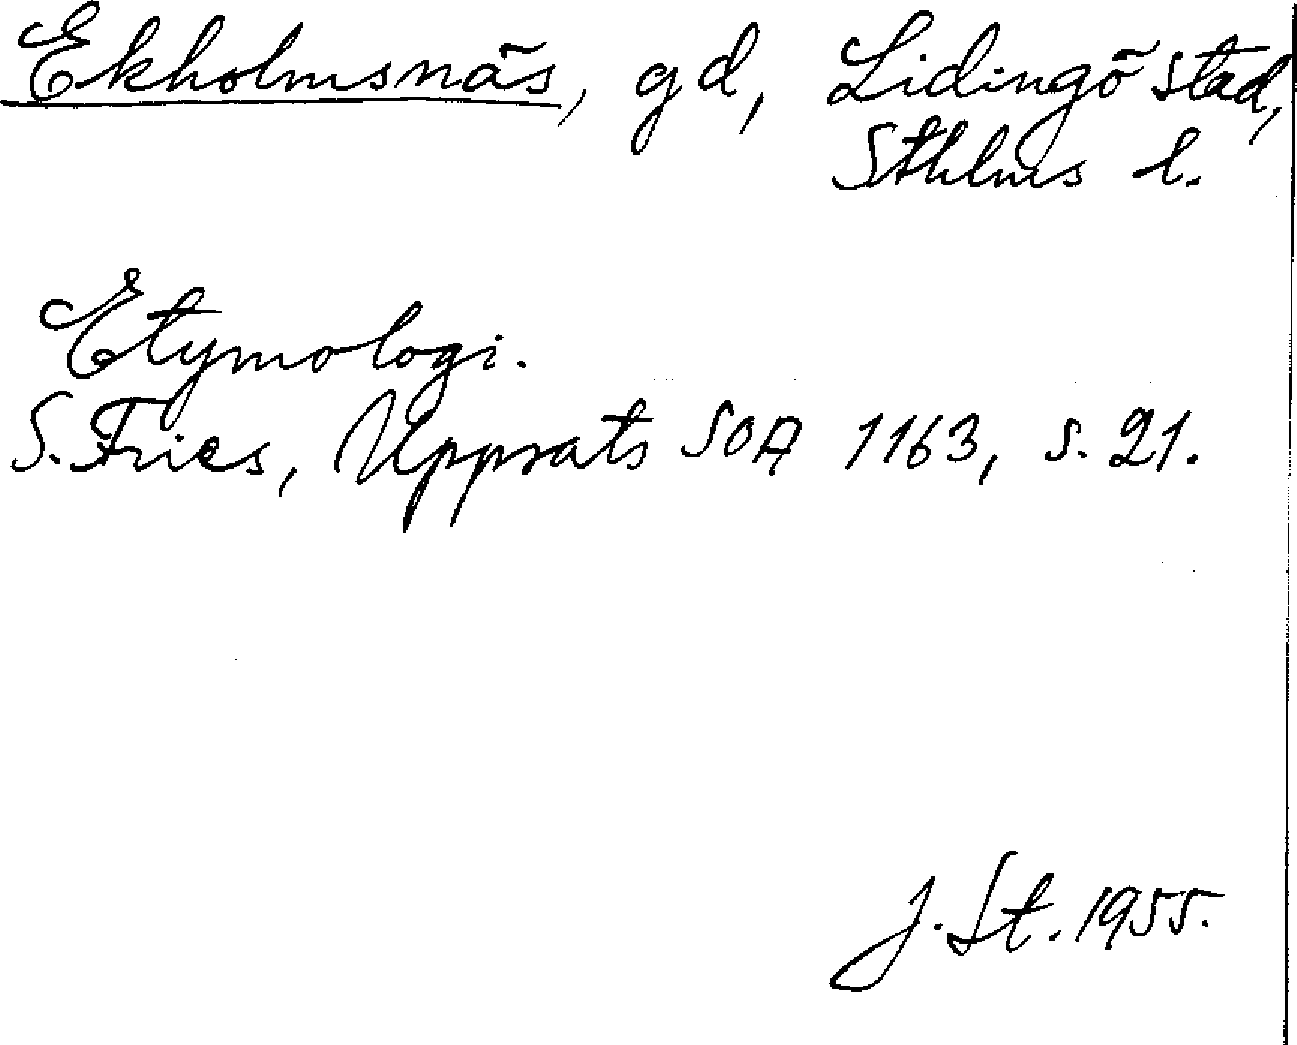 Ekholmsnäs, gd, Lidingö stad,
Sthlms l.
Etymologi.
S. Fries, Uppsats SOA 1163, s. 21.
J. St. 1955.